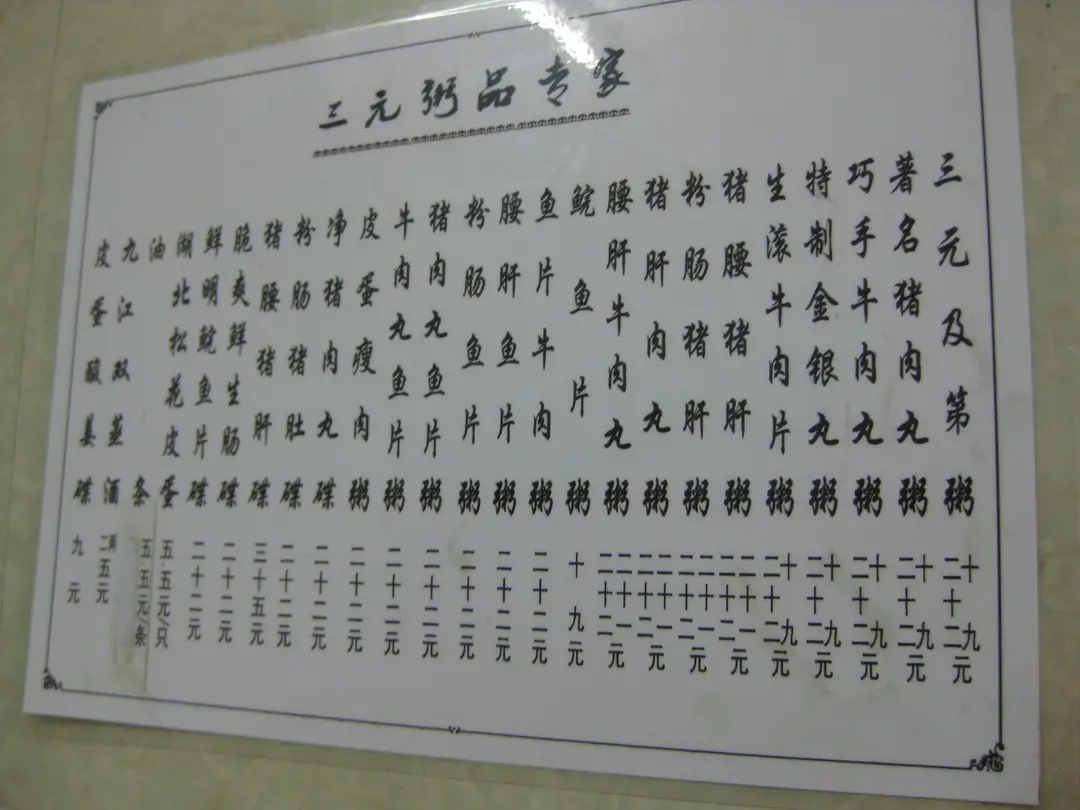 三元粥品专家
三元及第粥 十九 二十二元
著名猪肉丸粥 十九 二十二元
巧手牛肉丸粥 十九 二十二元
特制金银丸粥 十九 二十二元
生滚牛肉片粥 十九 二十二元
猪腰猪肝粥 二十一 二十二元
粉肠猪肝粥 二十一 二十二元
猪肝肉丸粥 二十一 二十二元
腰肝牛肉丸粥 二十一 二十二元
鲩鱼片粥 十九元
鱼片牛肉粥 二十二元
腰肝鱼片粥 二十二元
粉肠鱼片粥 二十二元
猪肉丸鱼片粥 二十二元
牛肉丸鱼片粥 二十二元
皮蛋瘦肉粥 二十二元
净猪肉丸碟 二十二元
粉肠猪肚碟 二十二元
猪腰猪肝碟 三十五元
脆爽鲜生肠碟 二十二元
鲜明鲩鱼片碟 二十二元
湖北松花皮蛋 五.五元/只
油条 五.五元/条
九江双蒸酒 二两五元
皮蛋酸姜碟 九元